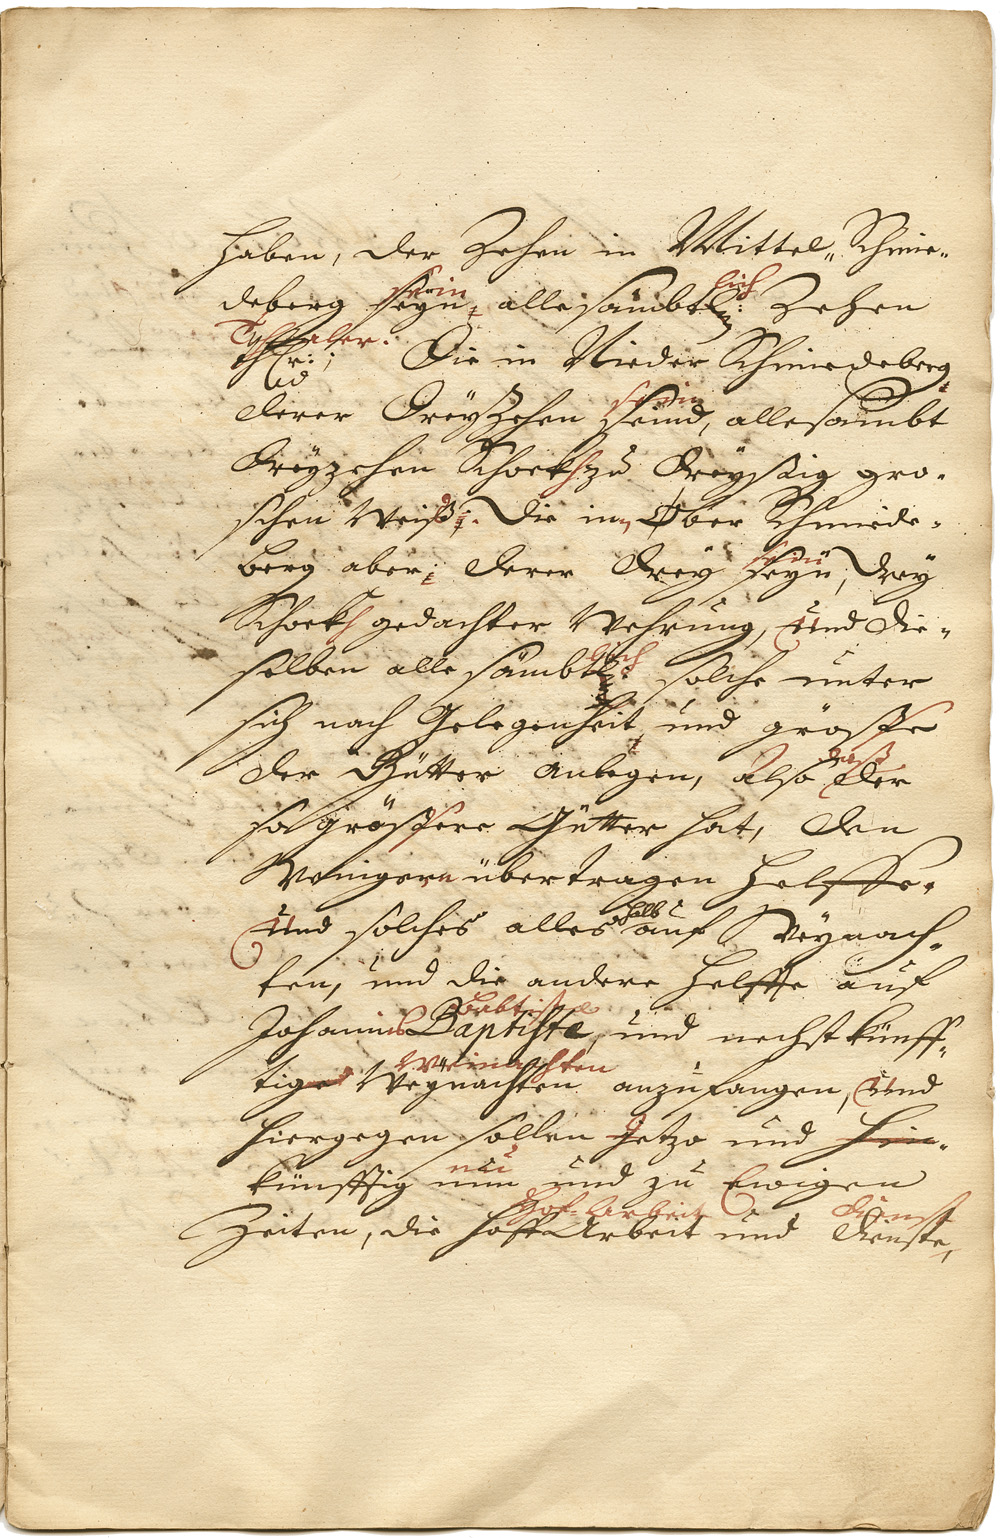 haben, der Zehen in Mittel„ Schmie-
sein lich
deberg seyn, allesämbtl: Zehen
Thaler.
thlr:; Die in Nieder Schmiedeberg
sein
derer Dreyzehen seind, allesämbt
Dreyzehen Schockh zu Dreyssig gro-
schen Weiß; Die in Ober Schmiede-
sein
berg aber; derer Drey seyn, drey
Schockh gedachter Wehrung, und die-
lich
selben alle sämbtl: solche unter
sich nach Gelegenheit und grösse
daß
der Gütter anlegen, also der
so grössere Gütter hat, den
Wenigern übertragen helffe.
halb
und solches alles auf Weynach-
ten, und die andere helffte auf
Babtista
Johannis Baptista, und nechstkünff-
Weinachten
tige Weynachten anzufangen, und
hiergegen sollen Jetzo und hin-
nu
künfftig nun und zu Ewigen
Hof-Arbeit Dienst
Zeiten, die hoff Arbeit und Dienste,